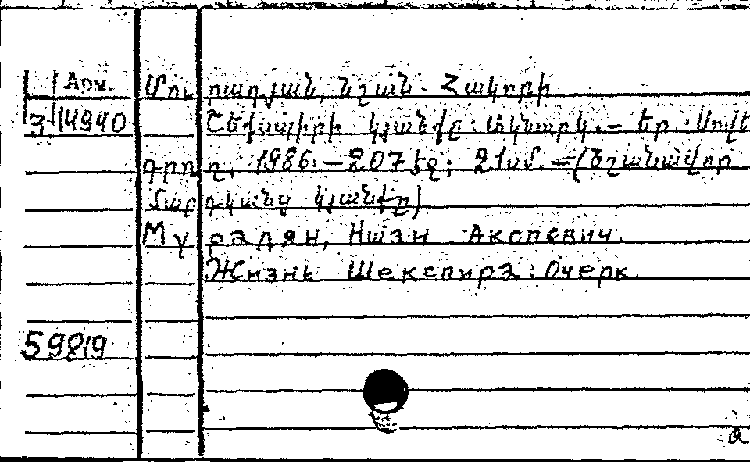 Арм. Մու րադյան, Նշան Հակոբի
3 14940 Շեքսպիրի կյանքը: Ակնարկ. – Եր.: Սովետ.
գրող, 1986. – 207 էջ; 21սմ. – (Նշանավոր
մարդկանց կյանքը)
Мурадян, Ншан Акопевич.
Жизнь Шекспира: Очерк.
59819
a